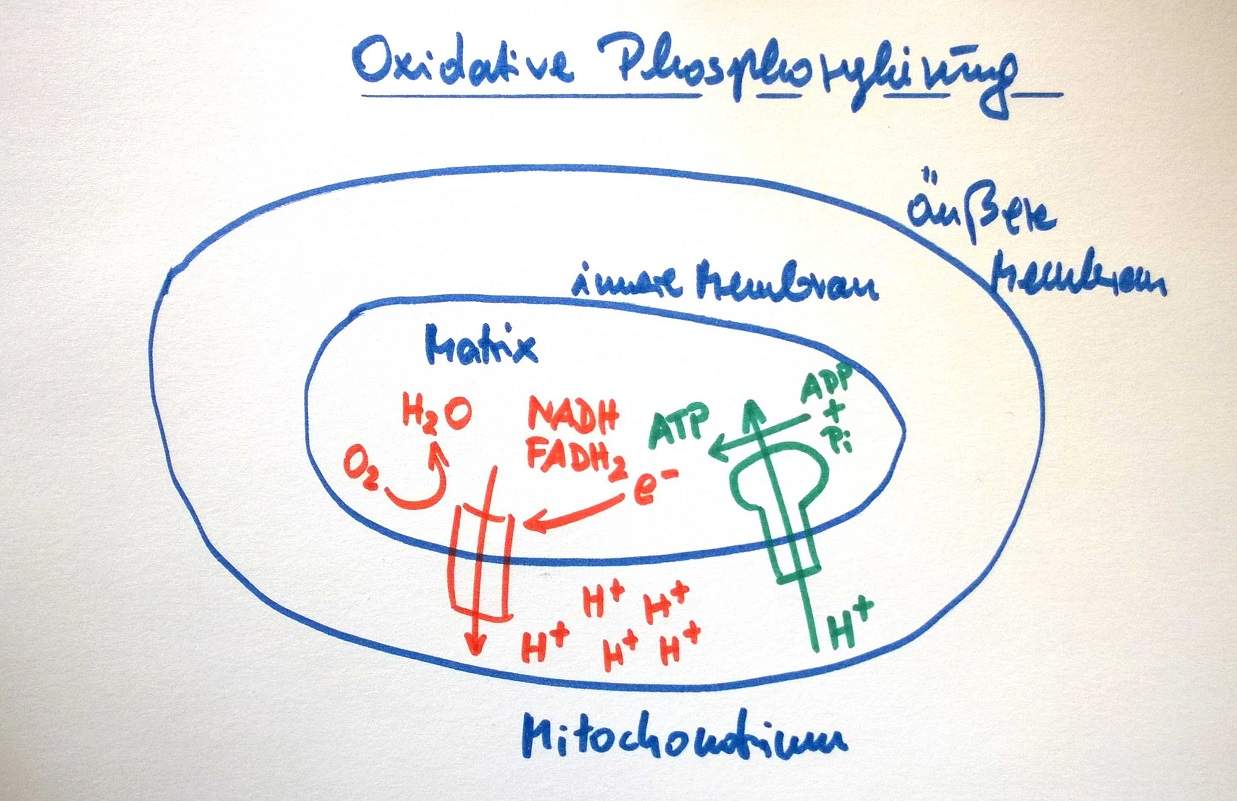 Oxidative Phosphorylierung
äußere
Membran
innere Membran
Matrix
H₂O
NADH
FADH₂
O₂
e⁻
ATP
ADP
+
Pi
H⁺ H⁺
H⁺ H⁺ H⁺
H⁺
Mitochondrium